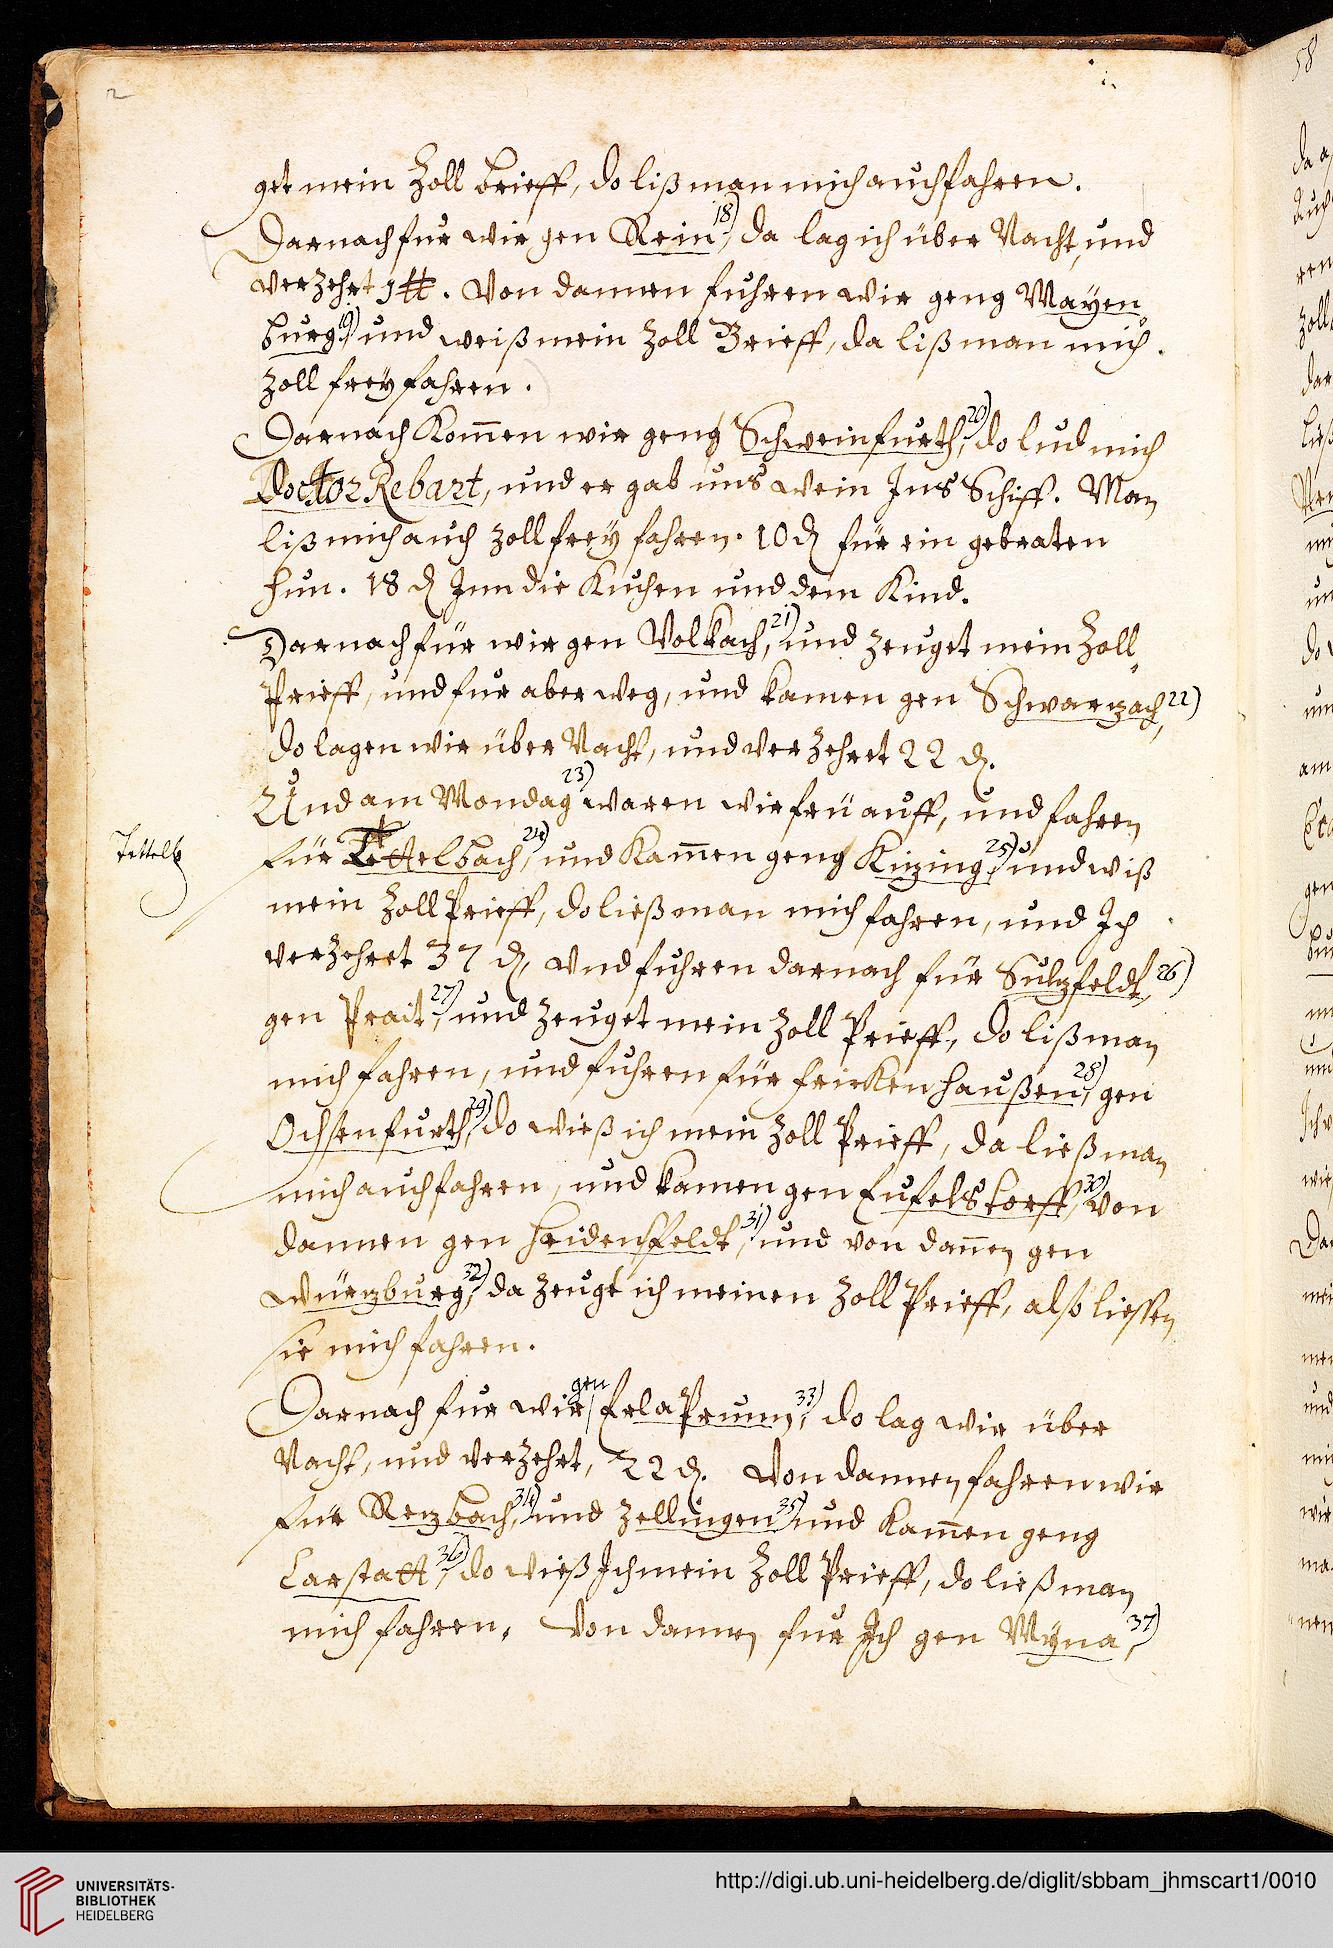 2
get mein Zoll brieff, do liß man mich auch fahren.
Darnach fur wir gen Rein,18) da lag ich über Nacht, und
verzehrt 1 ℔. Von dannen fuhren wir geng Mayen
burg,19) und weiß mein Zoll Brieff, da liß man mich
Zoll frey fahren.
Darnach Kom̄en wir geng Schweinfurth,20) do lud mich
Doctor Rebart, und er gab uns wein Ins Schiff. Man
liß mich auch Zoll frey fahren. 10 ₰ für ein gebraten
hun. 18 ₰ Inn die Kuchen und dem Kind.
Darnach für wir gen Volkach,21) und Zeuget mein Zoll
Prieff, und fur aber weg, und kamen gen Schwarzach,22)
do lagen wir über Nacht, und verzehret 22 ₰.
Und am Mondag23) waren wir frü auff, und fahren
für Tettelbach,24) und Kam̄en geng Kizing,25) und wiß
Tettelb
mein Zoll Prieff, do ließ man mich fahren, und Ich
verzehret 37 ₰, Und fuhren darnach für Sulzfeldt,26)
gen Prait,27) und Zeuget mein Zoll Prieff, do liß man
mich fahren, und fuhren für frickenhaußen,28) gen
Ochsenfurth,29) do wieß ich mein Zoll Prieff, da ließ man
mich auch fahren, und kamen gen Eufelstorff,30) Von
dannen gen heidensfeldt,31) und von dan̄en gen
Würzburg,32) da Zeugt ich meinen Zoll Prieff, also liessen
sie mich fahren.
Darnach fur wir gen Erla Prunn,33) do lag wir über
Nacht, und verzehrt, 22 ₰. Von dannen fahren wir
für Rezbach,34) und Zellingen35) und Kam̄en geng
Carstatt,36) do wieß Ich mein Zoll Prieff, do ließ man
mich fahren. Von dannen fur Ich gen Myna,37)
58
UNIVERSITÄTS-
BIBLIOTHEK
HEIDELBERG
http://digi.ub.uni-heidelberg.de/diglit/sbbam_jhmscart1/0010